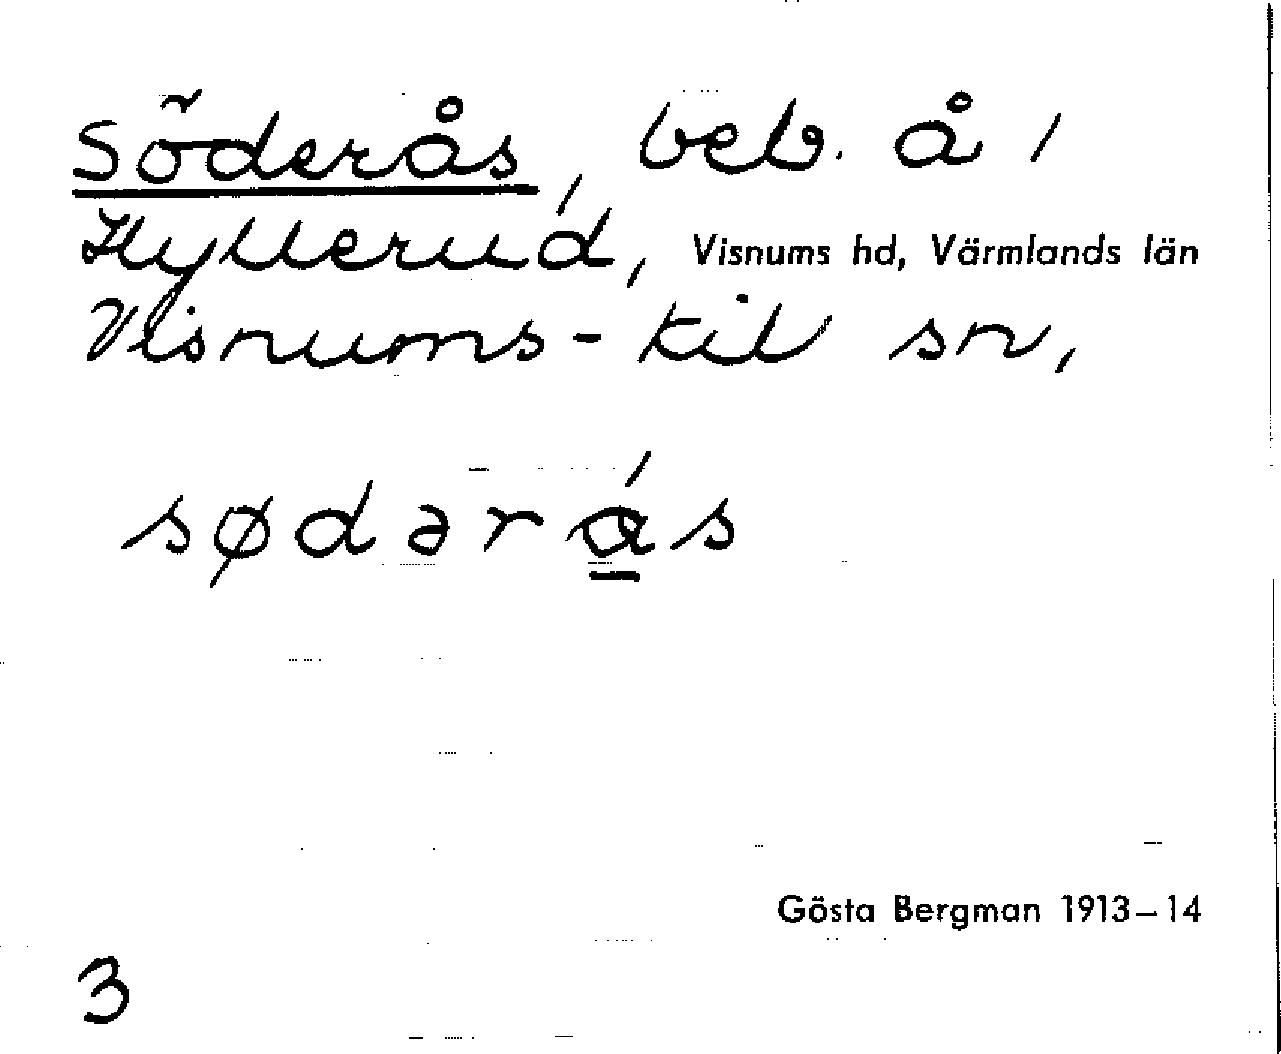 Söderås, beb. å /
Hyllerud, Visnums hd, Värmlands län
Visnums-Kil sn,
sødərás
Gösta Bergman 1913–14
3